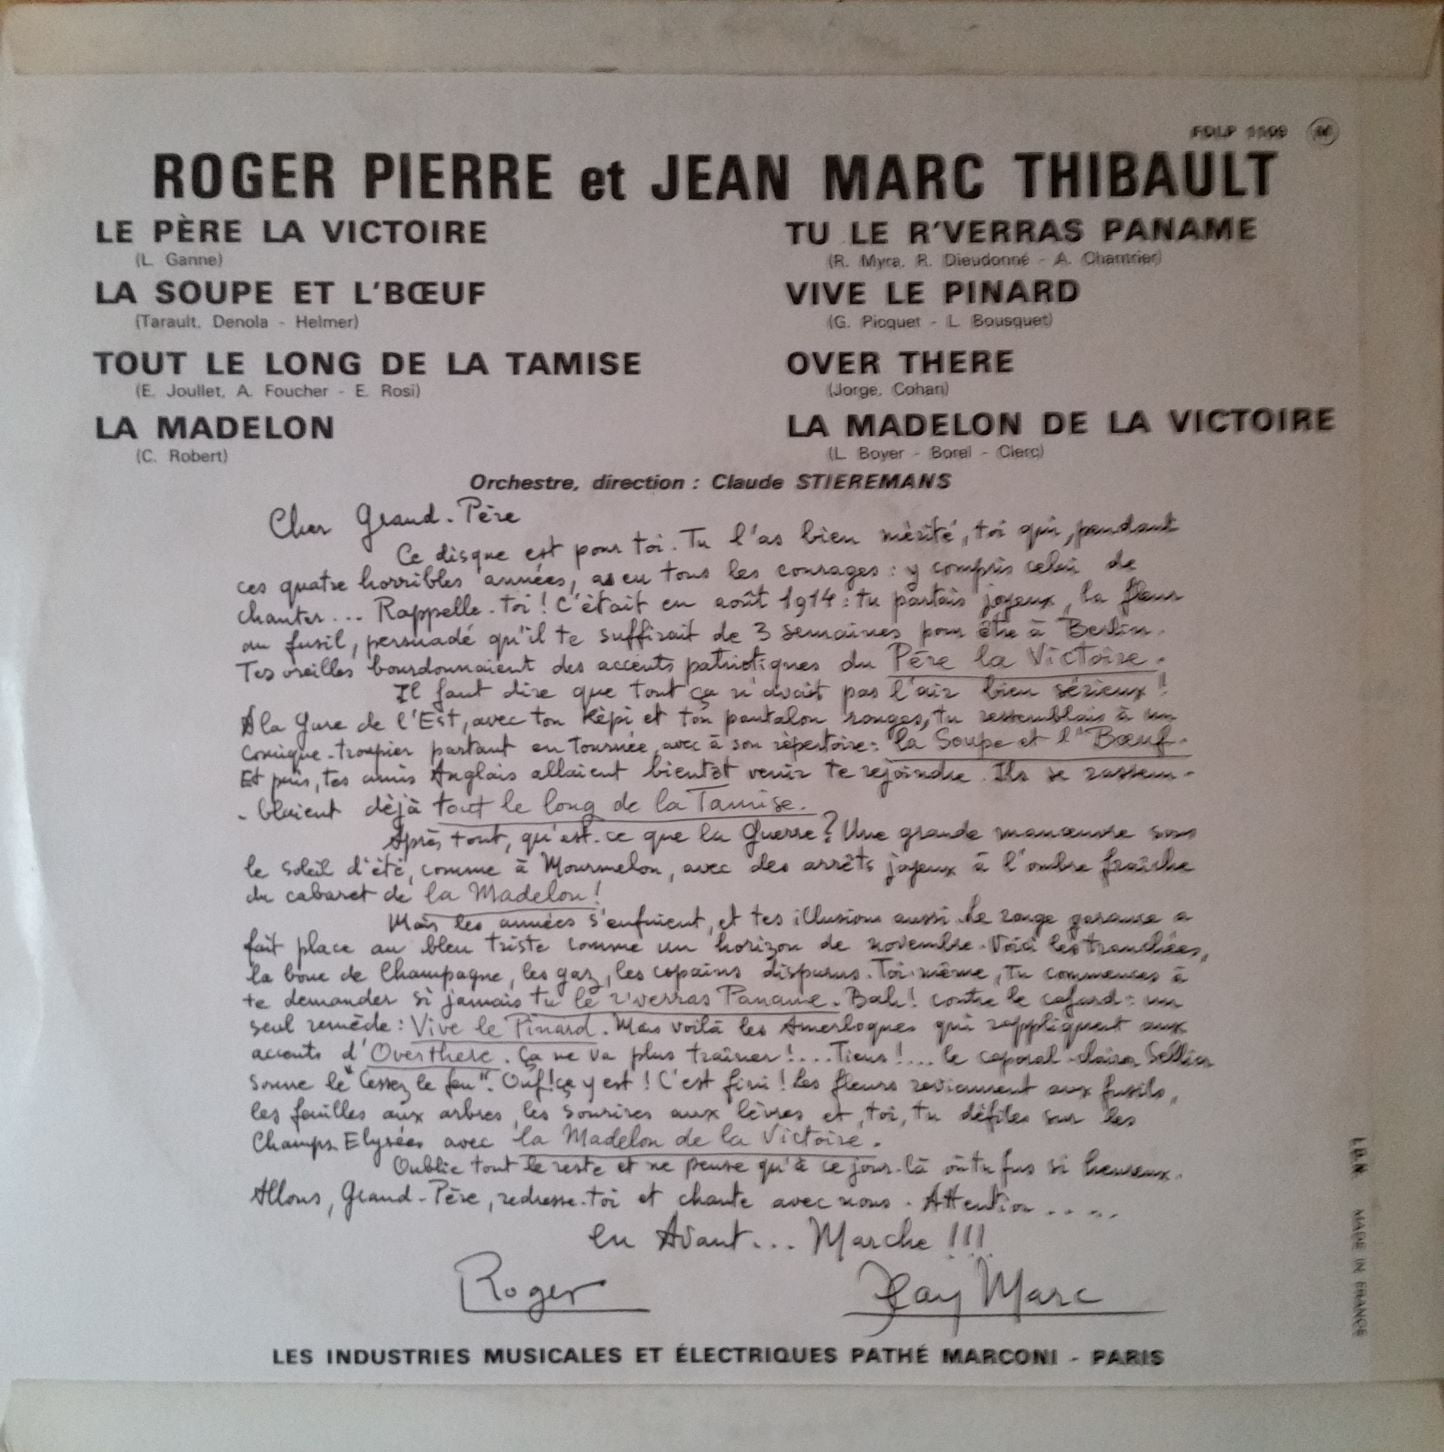 FDLP 1109
ROGER PIERRE et JEAN MARC THIBAULT
LE PÈRE LA VICTOIRE
(L. Ganne)
LA SOUPE ET L'BŒUF
(Tarault, Denola - Helmer)
TOUT LE LONG DE LA TAMISE
(E. Joullet, A. Foucher - E. Rosi)
LA MADELON
(C. Robert)
TU LE R'VERRAS PANAME
(R. Myra, R. Dieudonné - A. Chantrier)
VIVE LE PINARD
(G. Picquet - L. Bousquet)
OVER THERE
(Jorge, Cohan)
LA MADELON DE LA VICTOIRE
(L. Boyer - Borel - Clerc)
Orchestre, direction : Claude STIEREMANS
Cher Grand-Père
Ce disque est pour toi. Tu l'as bien mérité, toi qui, pendant
ces quatre horribles années, as eu tous les courages : y compris celui de
chanter... Rappelle-toi ! C'était en août 1914 : tu partais joyeux, la fleur
au fusil, persuadé qu'il te suffirait de 3 semaines pour être à Berlin.
Tes oreilles bourdonnaient des accents patriotiques du Père la Victoire.
Il faut dire que tout ça n'avait pas l'air bien sérieux !
A la Gare de l'Est, avec ton képi et ton pantalon rouges, tu ressemblais à un
comique-troupier partant en tournée, avec à son répertoire : la Soupe et l'Bœuf.
Et puis, tes amis Anglais allaient bientôt venir te rejoindre. Ils se rassem-
-blaient déjà tout le long de la Tamise.
Après tout, qu'est-ce que la Guerre ? Une grande manœuvre sous
le soleil d'été, comme à Mourmelon, avec des arrêts joyeux à l'ombre fraîche
du cabaret de la Madelon !
Mais les années s'enfuient, et tes illusions aussi. Le rouge garance a
fait place au bleu triste comme un horizon de novembre. Voici les tranchées,
la boue de Champagne, les gaz, les copains disparus. Toi-même, tu commences à
te demander si jamais tu le r'verras Paname. Bah ! contre le cafard : un
seul remède : Vive le Pinard. Mais voilà les Amerloques qui rappliquent aux
accents d'Over there. Ça ne va plus traîner !... Tiens !... le caporal-clairon Sellier
sonne le "Cessez le feu". Ouf ! ça y est ! C'est fini ! Les fleurs reviennent aux fusils,
les feuilles aux arbres, les sourires aux lèvres et, toi, tu défiles sur les
Champs Elysées avec la Madelon de la Victoire.
Oublie tout le reste et ne pense qu'à ce jour-là où tu fus si heureux.
Allons, Grand-Père, redresse-toi et chante avec nous. Attention.....
en Avant... Marche !!!
Roger
Jean Marc
LES INDUSTRIES MUSICALES ET ÉLECTRIQUES PATHÉ MARCONI - PARIS
MADE IN FRANCE